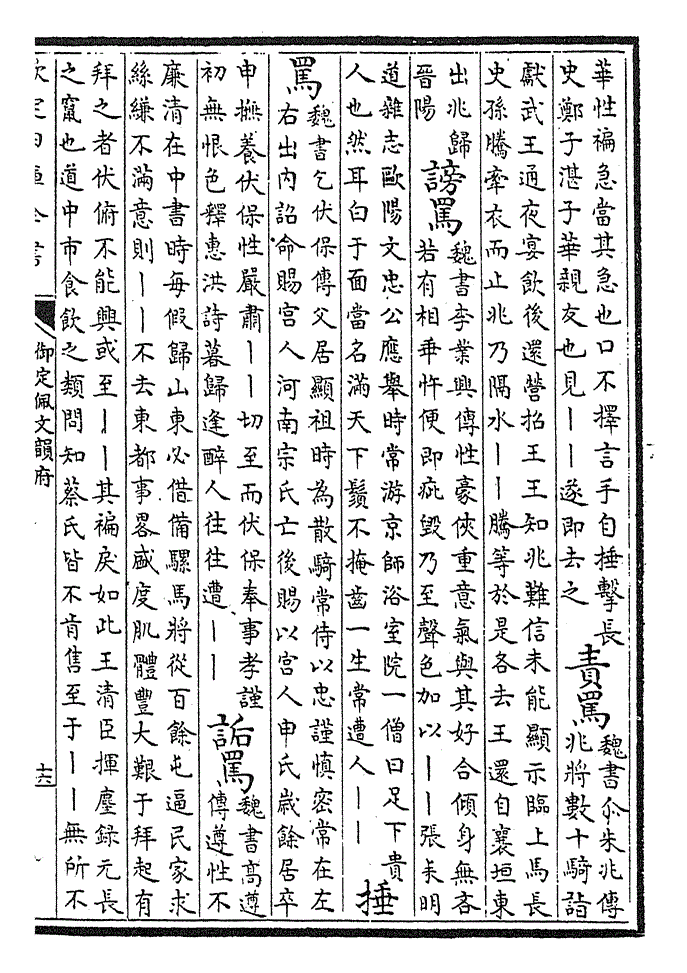 華性褊急當其急也口不擇言手自捶擊長
史鄭子湛子華親友也見丨丨遂即去之
責罵
魏書尒朱兆傳
兆將數十騎詣
獻武王通夜宴飲後還營招王王知兆難信未能顯示臨上馬長
史孫騰牽衣而止兆乃隔水丨丨騰等於是各去王還自襄垣東
出兆歸
晉陽
謗罵
魏書李業興傳性豪俠重意氣與其好合傾身無吝
若有相乖忤便即疵毀乃至聲色加以丨丨張耒明
道雜志歐陽文忠公應舉時常游京師浴室院一僧曰足下貴
人也然耳白于面當名滿天下鬚不掩齒一生常遭人丨丨
捶
罵
魏書乞伏保傳父居顯祖時為散騎常侍以忠謹慎密常在左
右出內詔命賜宮人河南宗氏亡後賜以宮人申氏歲餘居卒
申撫養伏保性嚴肅丨丨切至而伏保奉事孝謹
初無恨色釋惠洪詩暮歸逢醉人往往遭丨丨
詬罵
魏書高遵
傳遵性不
廉清在中書時每假歸山東必借備騾馬將從百餘屯逼民家求
絲縑不滿意則丨丨不去東都事畧盛度肌體豐大艱于拜起有
拜之者伏俯不能興或至丨丨其褊戾如此王清臣揮麈録元長
之竄也道中市食飲之類問知蔡氏皆不肯售至于丨丨無所不
欽定四庫全書
御定佩文韻府
十六